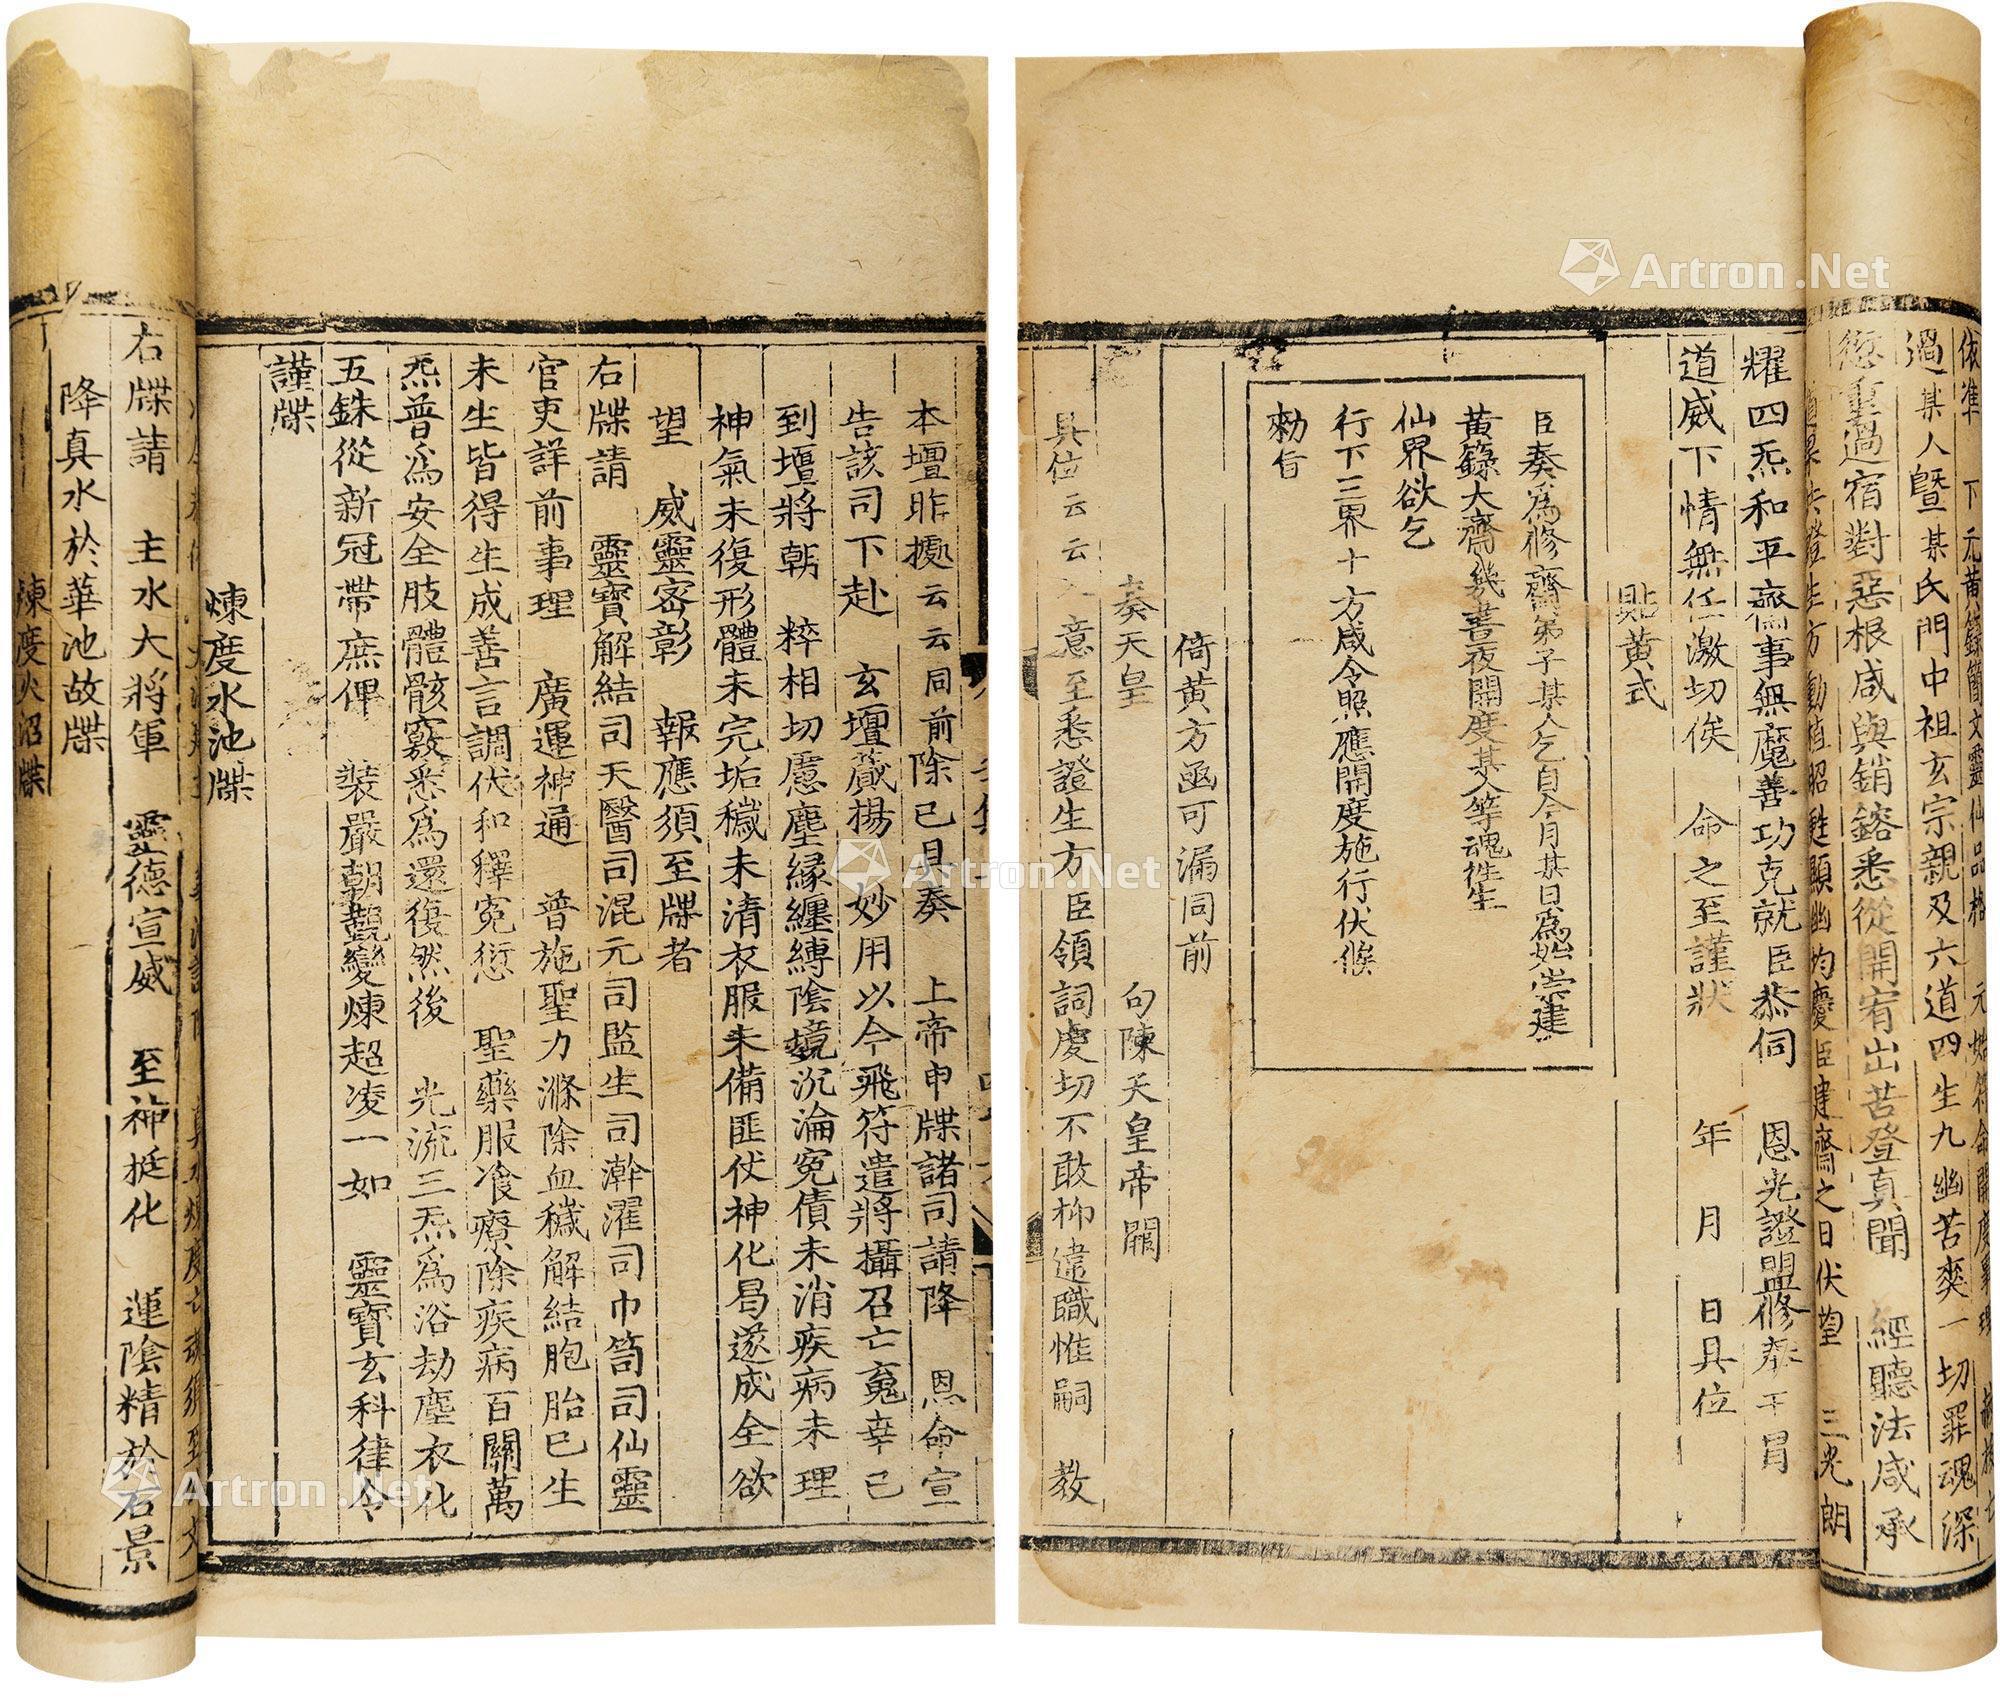 依準　下元黃籙簡文靈仙品格　元始符命開度事理
過某人曁某氏門中祖玄宗親及六道四生九幽苦爽一切罪魂深
愆重過宿對惡根咸與銷鎔悉從開宥出苦登真聞　經聽法咸承
生方動植昭甦顯幽均慶臣建齋之日伏望　三光朗
耀四炁和平齋事無魔善功克就臣恭伺　恩光證盟修奉干冒
道威下情無任激切俟　命之至謹狀　年　月　日具位
貼黃式
臣奏爲修齋弟子某人乞自今月某日爲始崇建
黃籙大齋幾晝夜開度某人等魂徃生
仙界欲乞
行下三界十方咸令照應開度施行伏候
勑旨
倚黃方凾可漏同前
奏天皇　句陳天皇帝闕
具位云云入意至悉證生方臣領詞慶切不敢抑違職惟嗣　教
本壇昨據云云同前除已具奏　上帝申牒諸司請降　恩命宣
告該司下赴　玄壇蕆揚妙用以今飛符遣將攝召亡䰟幸已
到壇將朝　粹相切慮塵緣纏縛陰境沉淪寃債未消疾病未理
神氣未復形體未完垢穢未清衣服未備匪伏神化曷遂成全欲
望　威靈密彰　報應須至牒者
右牒請　靈寶解結司天醫司混元司監生司澣濯司巾笥司仙靈
官吏詳前事理　廣運神通　普施聖力滌除血穢解結胞胎已生
未生皆得生成善言調伏和釋寃愆　聖藥服飡療除疾病百關萬
炁普爲安全肢體骸竅悉爲還復然後　光流三炁爲浴劫塵衣化
五銖從新冠帶庶俾　裝嚴朝覲變煉超凌一如　靈寶玄科律令
謹牒
煉度水池牒
右牒請　主水大將軍　靈德宣威　至神挺化　運陰精於石景
降真水於華池故牒
煉度火沼牒
Artron.Net
Artron.Net
Artron.Net